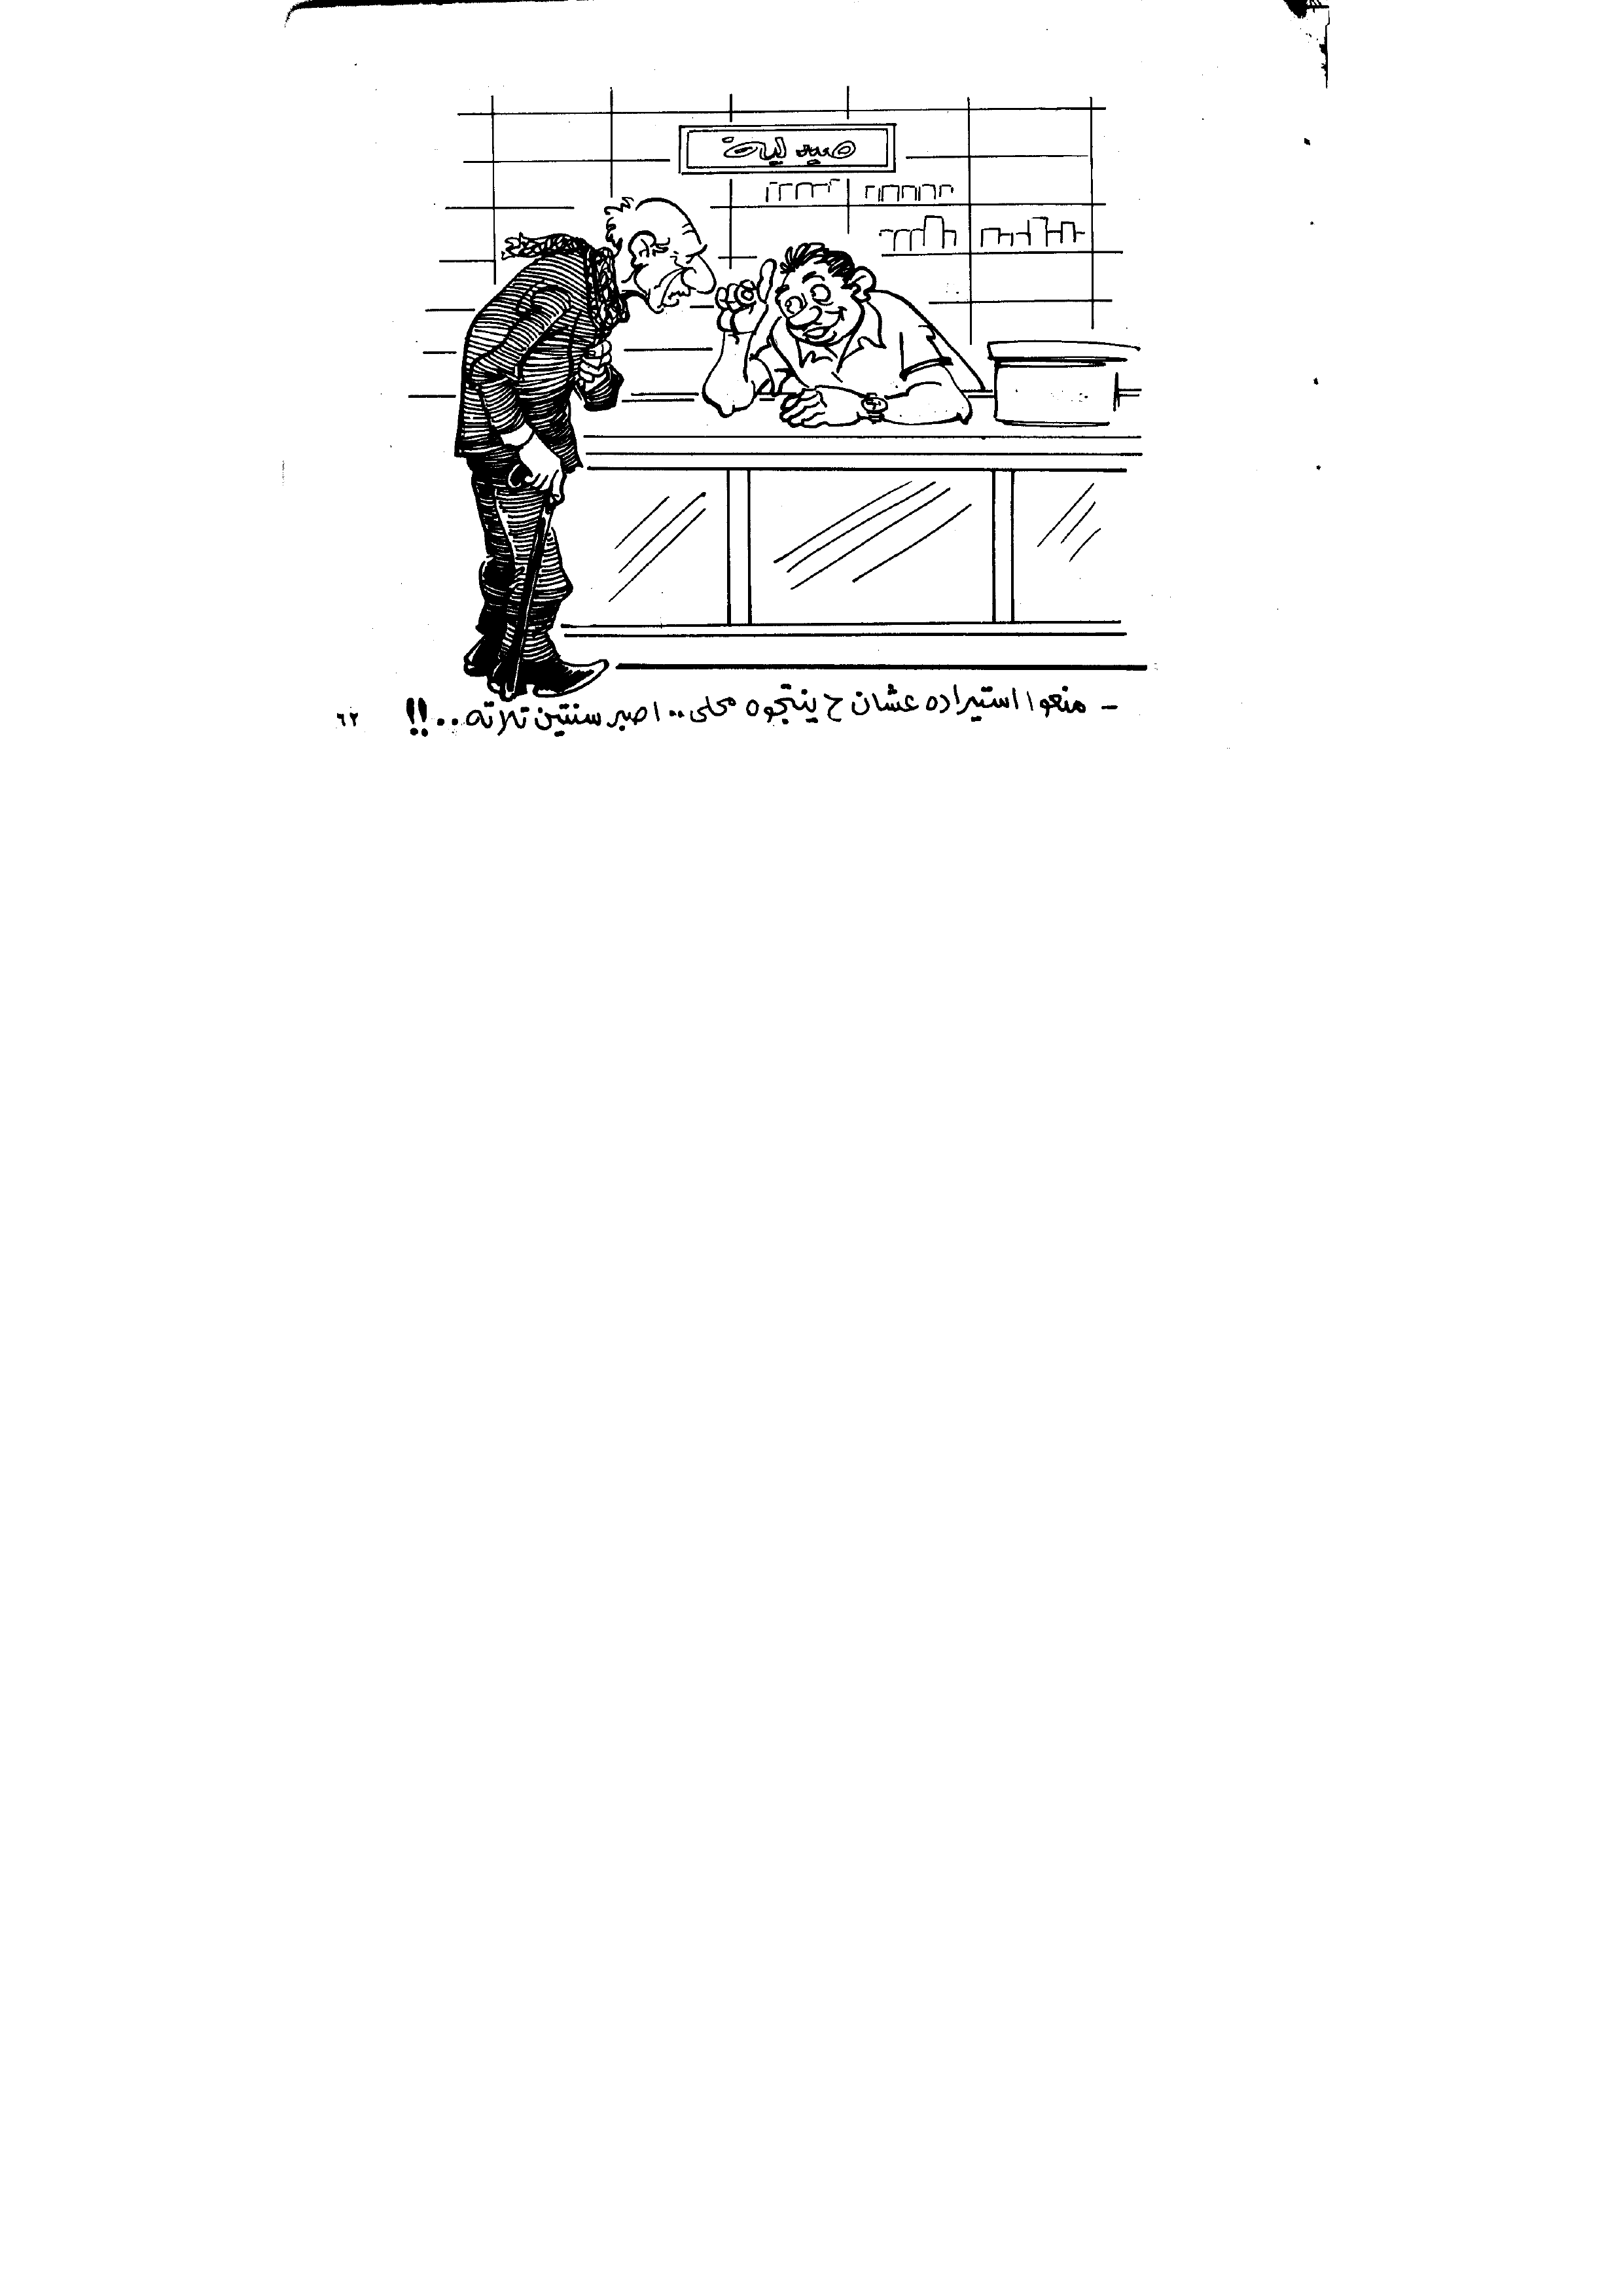 صيدلية
- منعوا استيراده عشان ح ينتجوه محلى.. اصبر سنتين تلاته..!!
٦٢